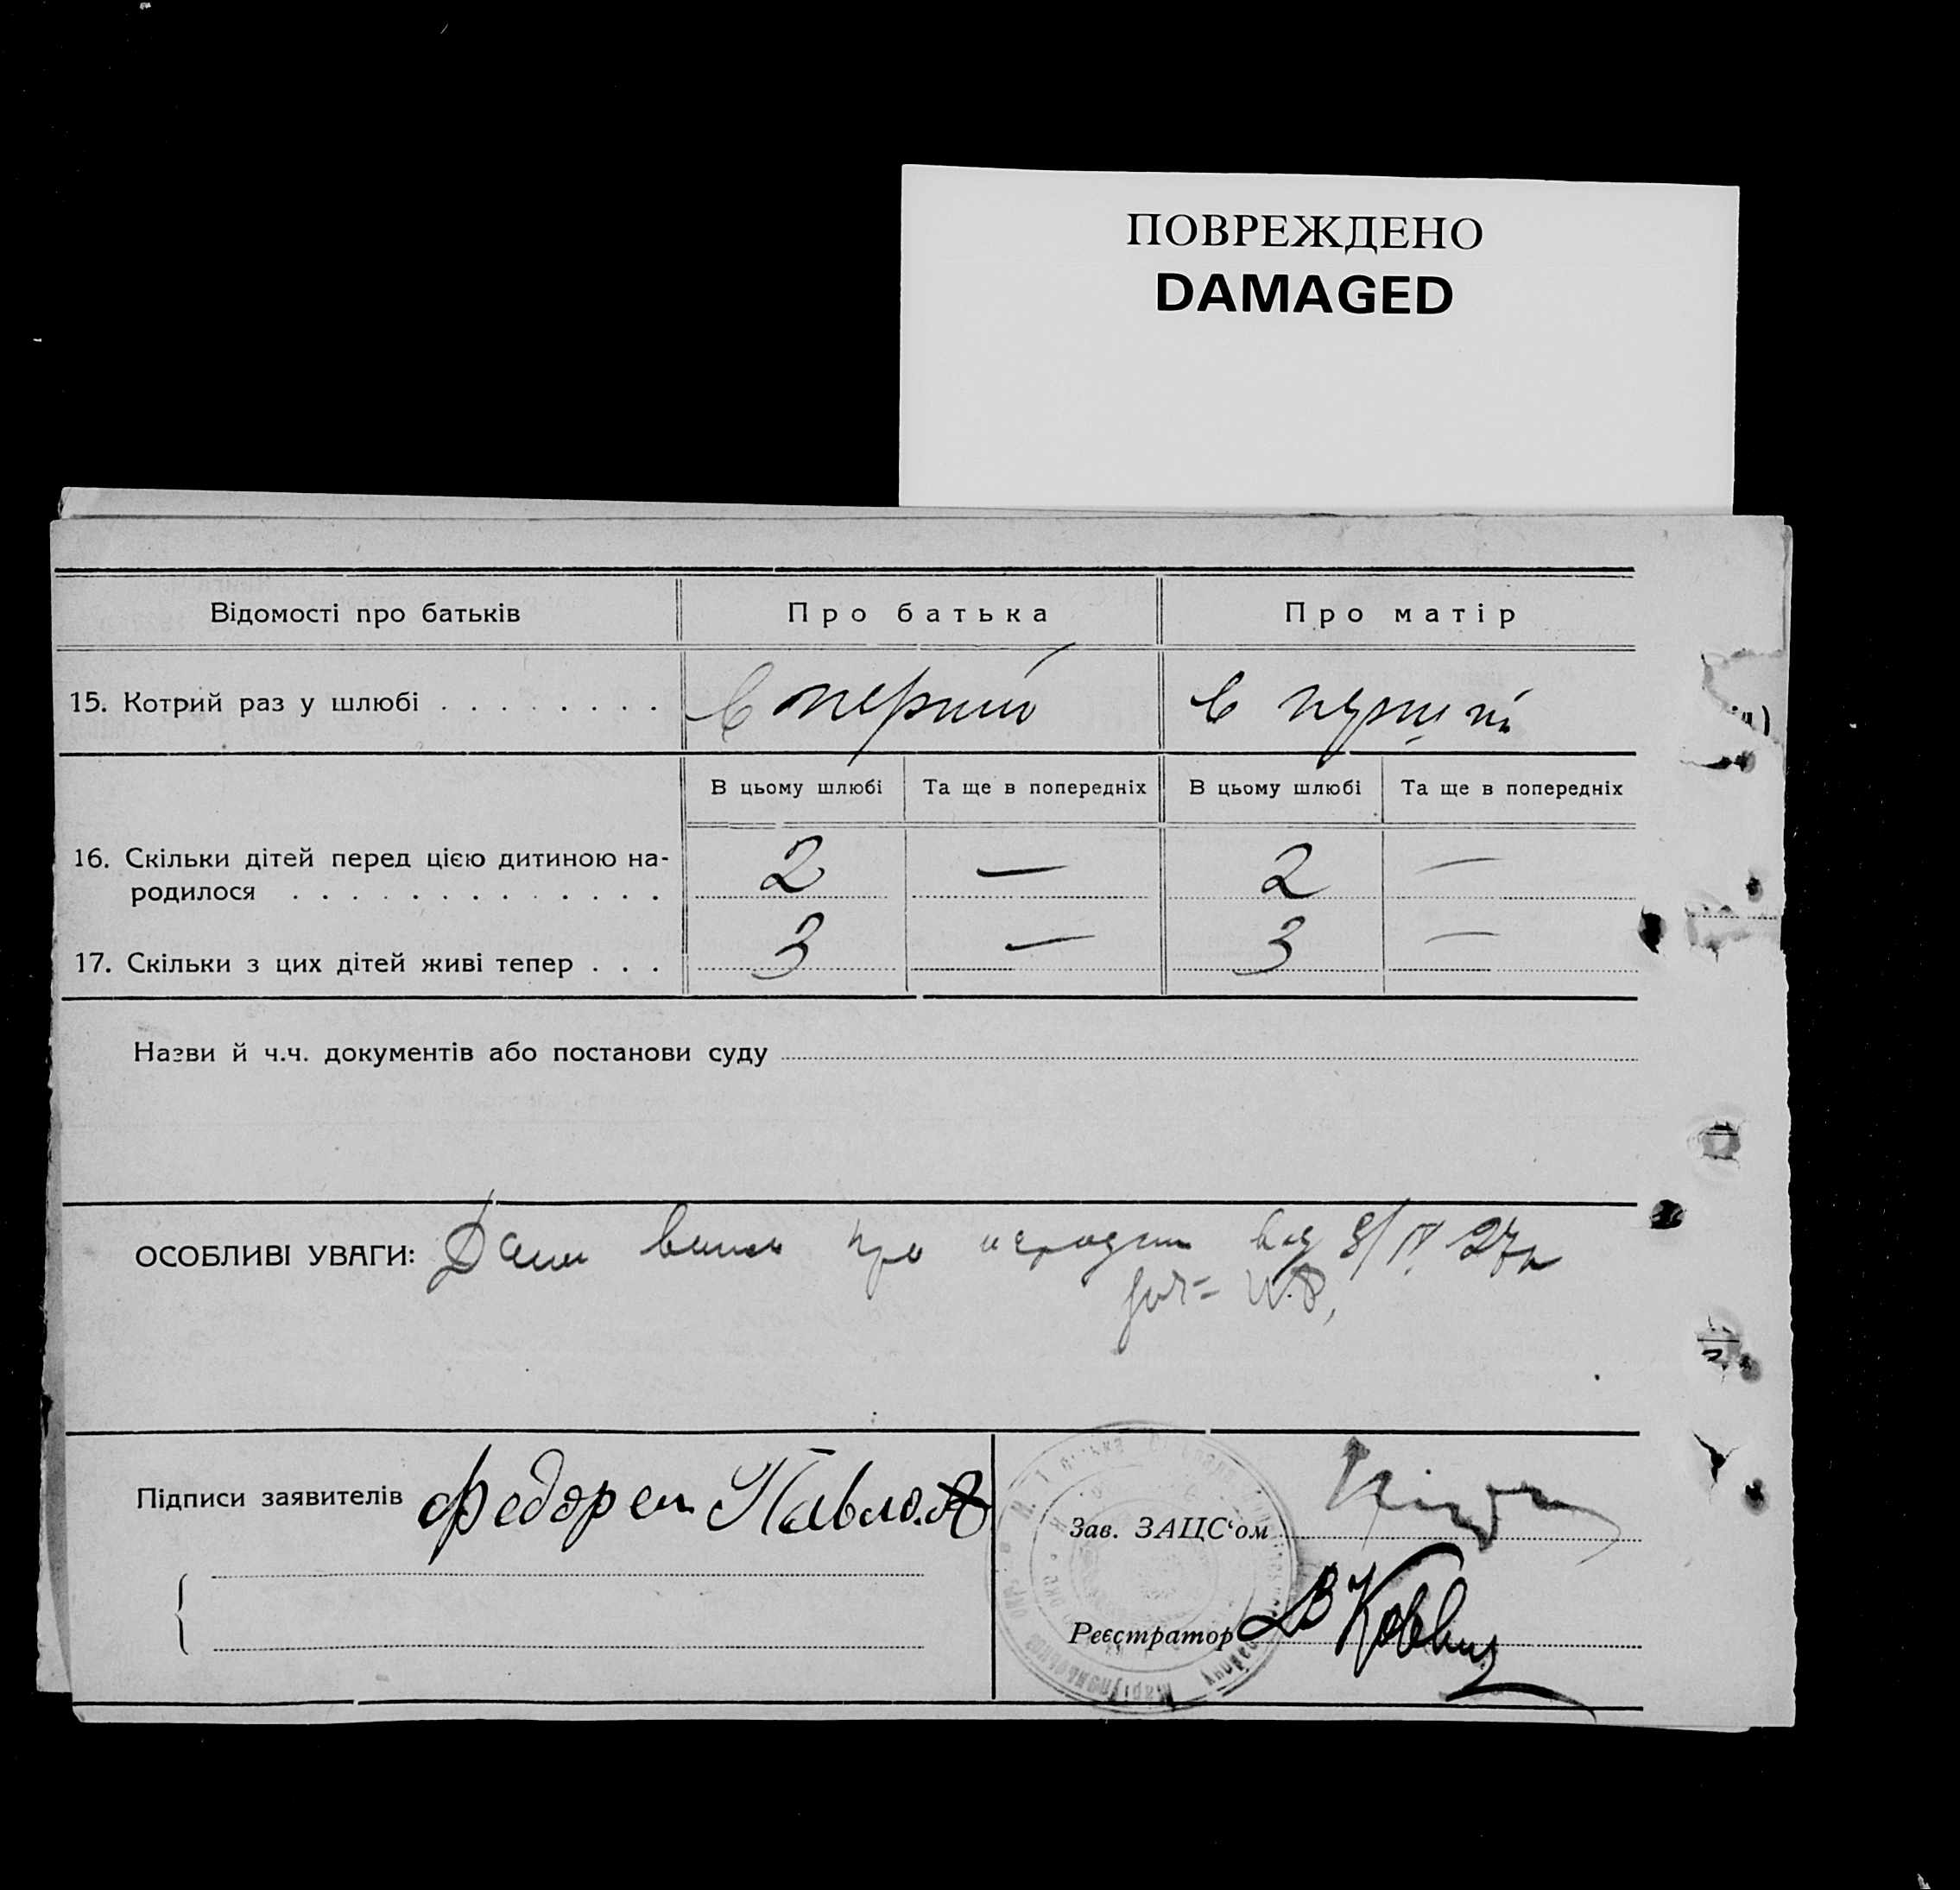 ПОВРЕЖДЕНО
DAMAGED
Відомості про батьків Про батька Про матір
15. Котрий раз у шлюбі . . . . . . . . в перший в
В цьому шлюбі Та ще в попередніх В цьому шлюбі Та ще в попередніх
16. Скільки дітей перед цією дитиною на-
родилося . . . . . . . . . . . . . 2 — 2 —
17. Скільки з цих дітей живі тепер . . . 3 — 3 —
Назви й ч.ч. документів або постанови суду
ОСОБЛИВІ УВАГИ: про від 8/IV 27р
Підписи заявителів Павло.А
Зав. ЗАЦС‘ом
Реєстратор